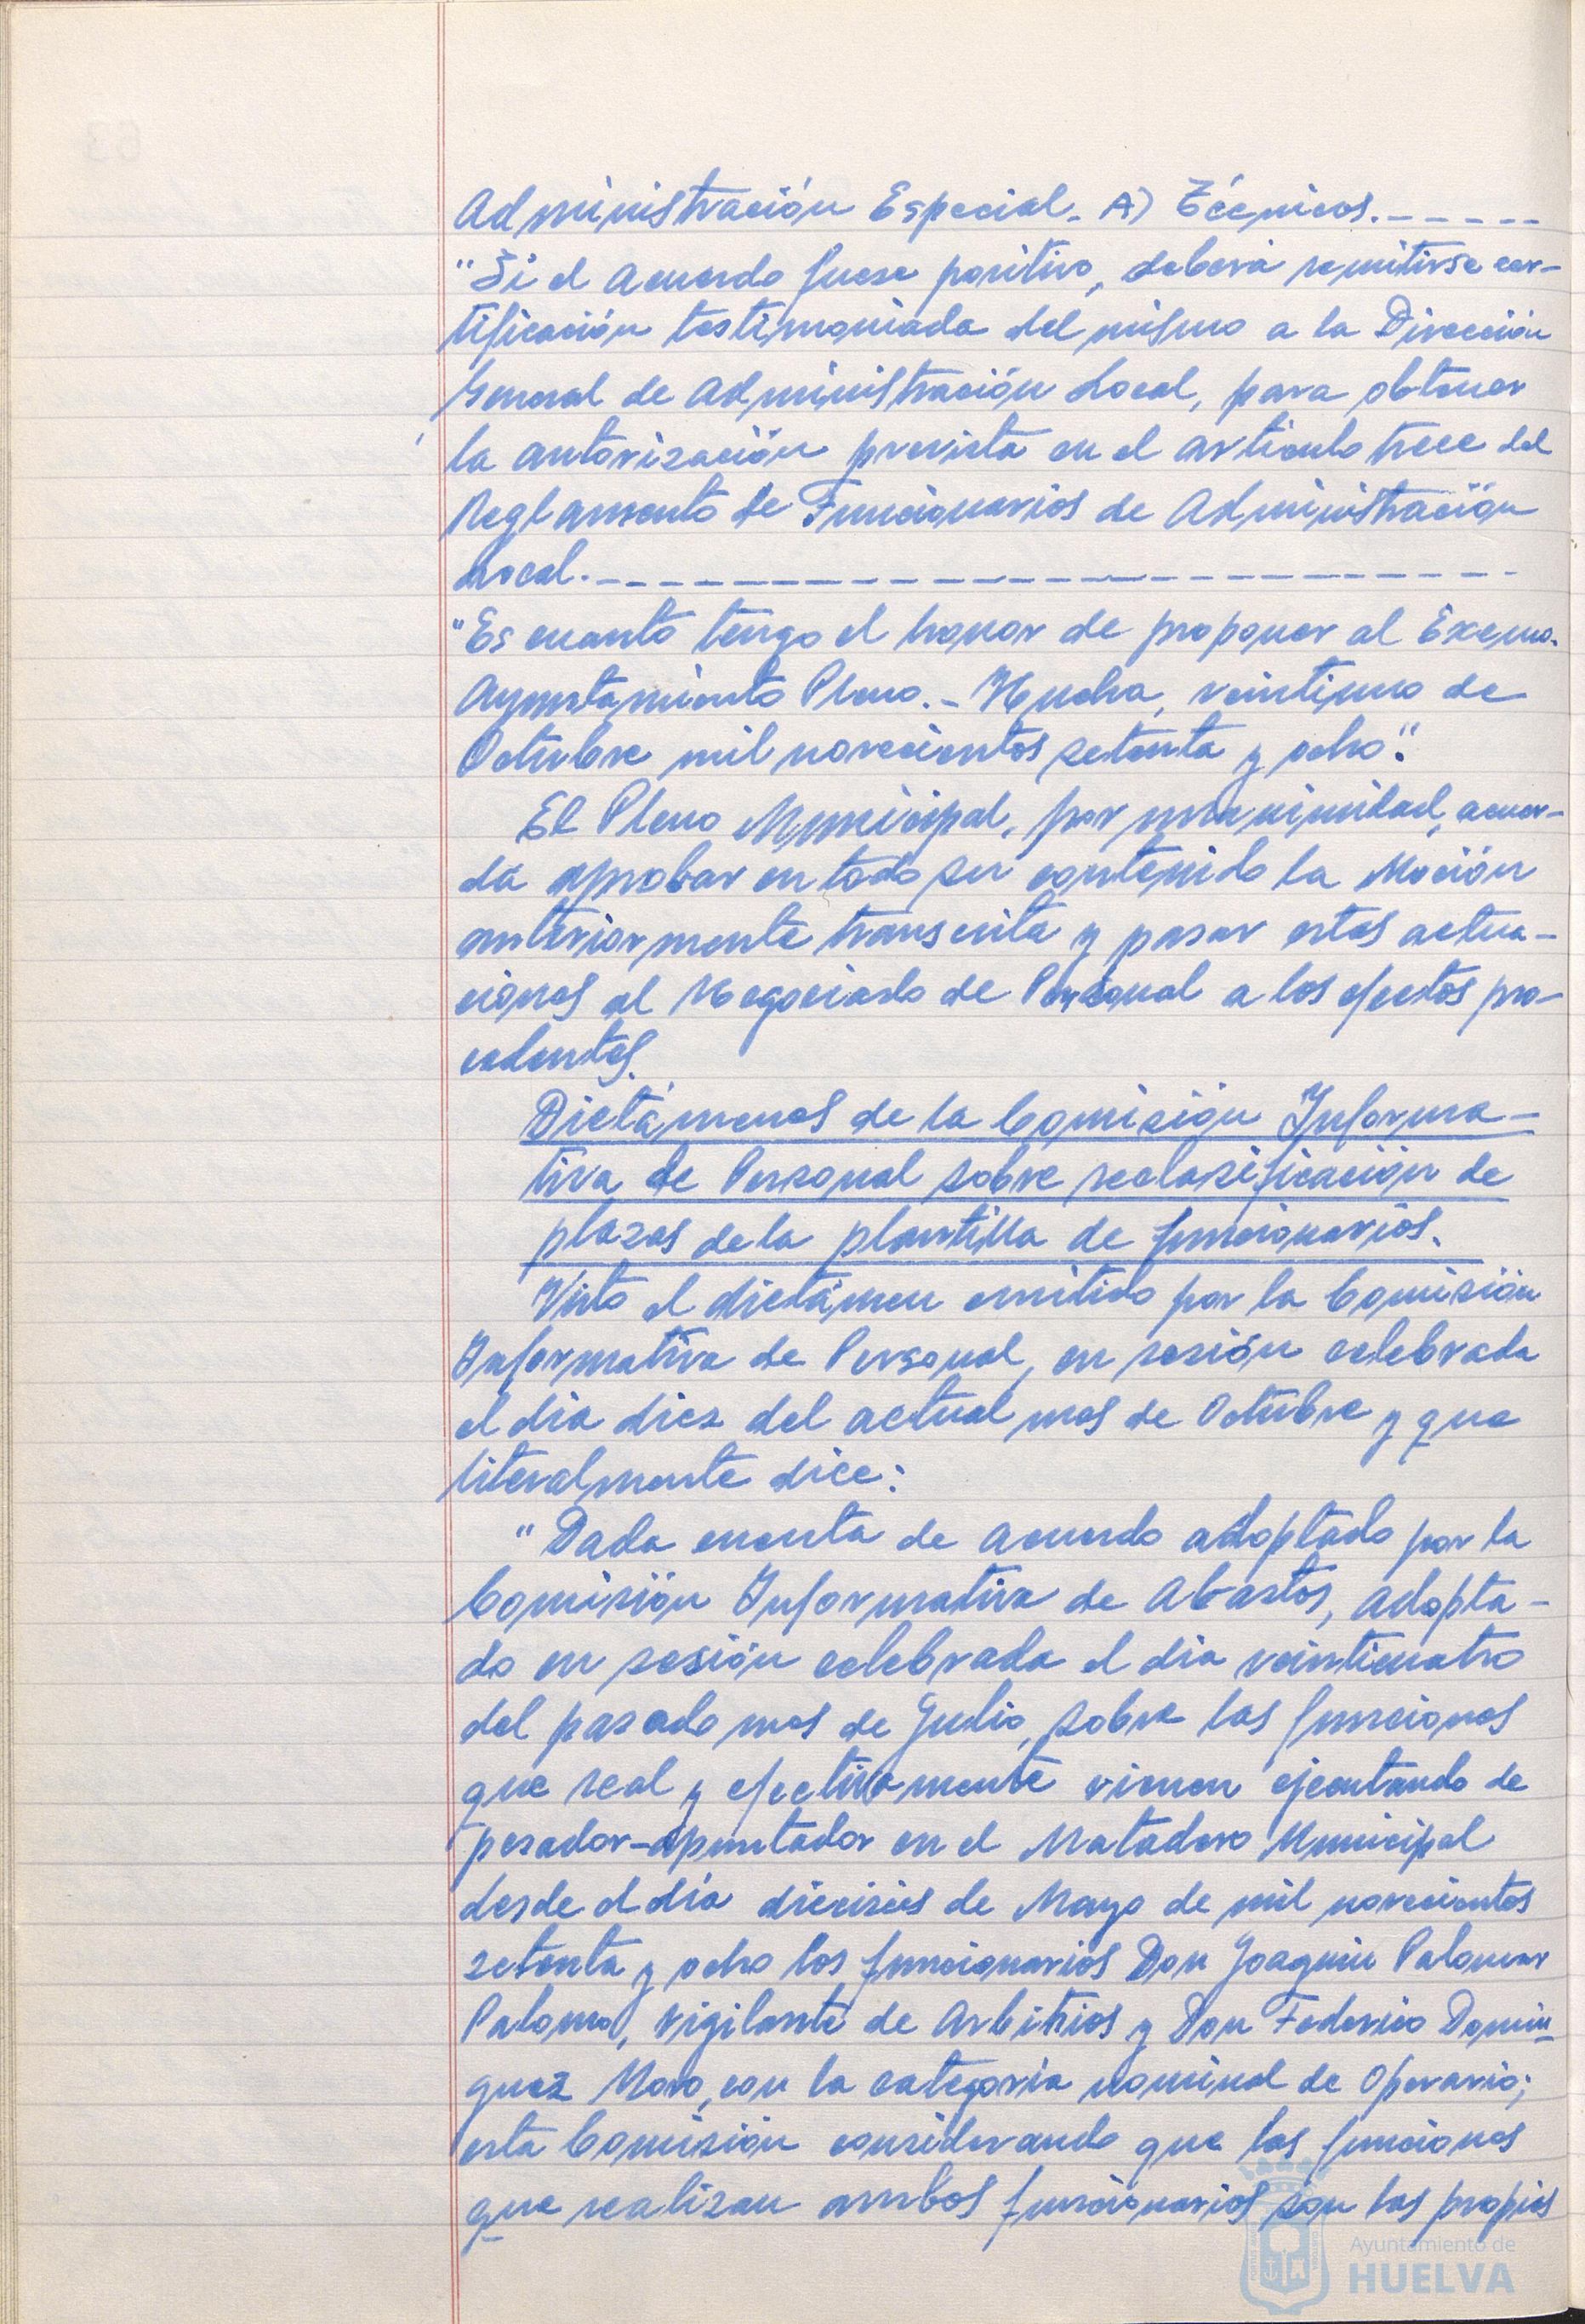 Administración Especial.- A) Técnicos.------
"Si el acuerdo fuese positivo, deberá remitirse cer-
tificación testimoniada del mismo a la Dirección
General de Administración Local, para obtener
la autorización prevista en el artículo trece del
Reglamento de Funcionarios de Administración
Local.-----------------
"Es cuanto tengo el honor de proponer al Excmo.
Ayuntamiento Pleno.- Huelva, veintiuno de
Octubre mil novecientos setenta y ocho".
El Pleno Municipal, por unanimidad, acuer-
da aprobar en todo su contenido la Moción
anteriormente transcrita y pasar estas actua-
ciones al Negociado de Personal a los efectos pro-
cedentes.
Dictámenes de la Comisión Informa-
tiva de Personal sobre reclasificación de
plazas de la plantilla de funcionarios.
Visto el dictámen emitido por la Comisión
Informativa de Personal, en sesión celebrada
el día diez del actual mes de Octubre y que
literalmente dice:
"Dada cuenta de acuerdo adoptado por la
Comisión Informativa de Abastos, adopta-
do en sesión celebrada el día veinticuatro
del pasado mes de Julio, sobre las funciones
que real y efectivamente vienen ejecutando de
pesador-apuntador en el Matadero Municipal
desde el día dieciseis de Mayo de mil novecientos
setenta y ocho los funcionarios Don Joaquin Palomar
Palomo, Vigilante de Arbitrios y Don Federico Domin-
guez Moro, con la categoria nominal de Operario;
esta Comisión considerando que las funciones
que realizan ambos funcionarios son las propias
Ayuntamiento de
HUELVA